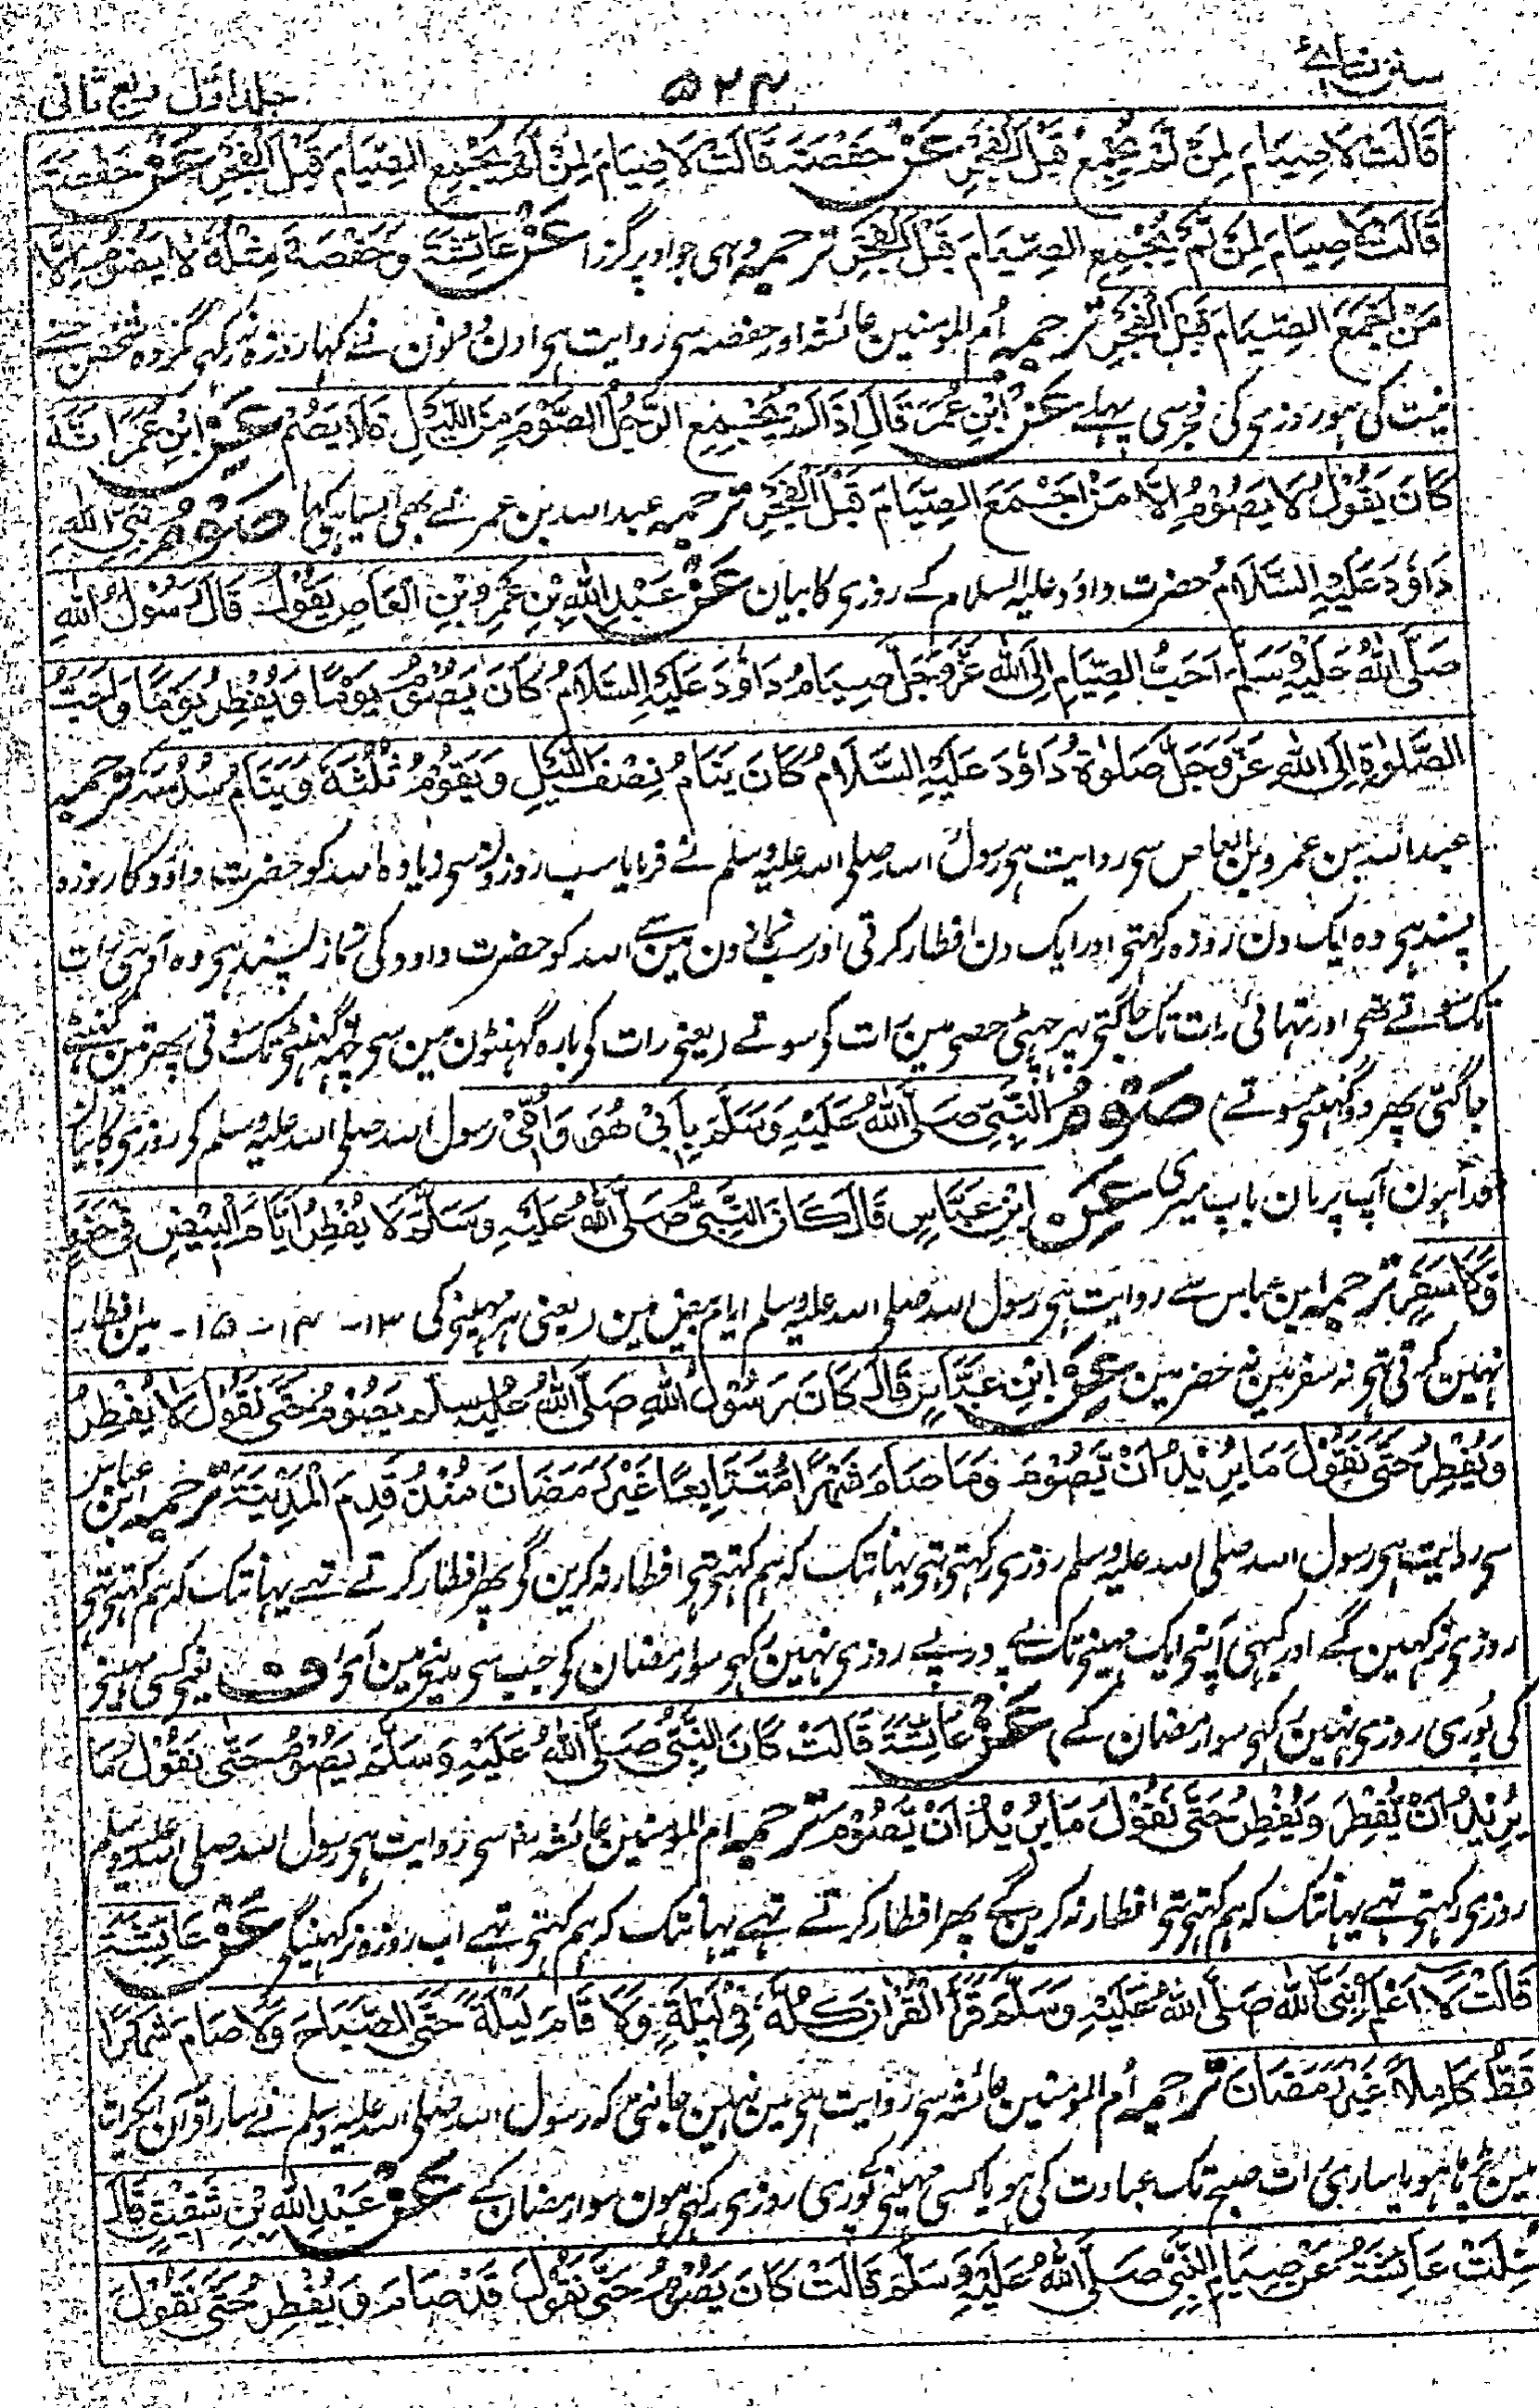 سنن نسائی ۵۲۴ جلد اول ربع ثانی
قَالَتْ لَا صِیَامَ لِمَنْ لَمْ یُجْمِعْ قَبْلَ الْفَجْرِ عَنْ حَفْصَةَ قَالَتْ لَا صِیَامَ لِمَنْ لَمْ یُجْمِعِ الصِّیَامَ قَبْلَ الْفَجْرِ عَنْ حَفْصَةَ
قَالَتْ لَا صِیَامَ لِمَنْ لَمْ یُجْمِعِ الصِّیَامَ قَبْلَ الْفَجْرِ ترجمہ وہی جو اوپر گزرا عَنْ عَائِشَةَ وَحَفْصَةَ مِثْلَهُ لَا یَصُوْمُ اِلَّا
مَنْ اَجْمَعَ الصِّیَامَ قَبْلَ الْفَجْرِ ترجمہ اُم المومنین عائشہ اور حفصہ سی روایت ہی اون دونون نے کہا روزہ نہ رکہی مگر وہ شخص جسنے
نیت کی ہو روزی کی فجر سی پہلے عَنْ ابْنِ عُمَرَ قَالَ اِذَا لَمْ یُجْمِعِ الرَّجُلُ الصَّوْمَ مِنَ اللَّیْلِ فَلَا یَصُمْ عَنْ ابْنِ عُمَرَ اَنَّهُ
كَانَ یَقُوْلُ لَا یَصُوْمُ اِلَّا مَنْ اَجْمَعَ الصِّیَامَ قَبْلَ الْفَجْرِ ترجمہ عبد اللہ بن عمر نے بھی ایسا ہی کہا صَوْمُ نَبِیِّ اللهِ
دَاوٗدَ عَلَیْهِ السَّلَامُ حضرت داود علیہ السلام کے روزی کا بیان عَنْ عَبْدِ اللهِ بْنِ عَمْرِو بْنِ الْعَاصِ یَقُوْلُ قَالَ رَسُوْلُ اللهِ
صَلَّی اللهُ عَلَیْهِ وَسَلَّمَ اَحَبُّ الصِّیَامِ اِلَی اللهِ عَزَّ وَجَلَّ صِیَامُ دَاوٗدَ عَلَیْهِ السَّلَامُ كَانَ یَصُوْمُ یَوْمًا وَیُفْطِرُ یَوْمًا وَاَحَبُّ
الصَّلٰوةِ اِلَی اللهِ عَزَّ وَجَلَّ صَلٰوةُ دَاوٗدَ عَلَیْهِ السَّلَامُ كَانَ یَنَامُ نِصْفَ اللَّیْلِ وَیَقُوْمُ ثُلُثَهُ وَیَنَامُ سُدُسَهُ ترجمہ
عبد اللہ بن عمرو بن العاص سی روایت ہی رسول اللہ صلی اللہ علیہ وسلم نے فرمایا سب روزون سی زیادہ اللہ کو حضرت داود کا روزہ
پسند ہی وہ ایک دن روزہ رکہتی اور ایک دن افطار کرتی اور سب نمازون مین سے اللہ کو حضرت داود کی نماز پسند ہی وہ آدہی رات
تک سوتے تہی اور تہائی رات تک جاگتی پہر چہٹی حصی مین رات کو سوتے (یعنی رات کو بارہ گہنٹون مین سی چہہ گہنٹی تک سوتی پھر تین گہنٹے
جاگتی پہر دو گہنٹی سوتے) صَوْمُ النَّبِیِّ صَلَّی اللهُ عَلَیْهِ وَسَلَّمَ بِاَبِیْ هُوَ وَاُمِّیْ رسول اللہ صلی اللہ علیہ وسلم کی روزی کا بیان
فدا ہون آپ پر مان باپ میری عَنْ ابْنِ عَبَّاسٍ قَالَ كَانَ النَّبِیُّ صَلَّی اللهُ عَلَیْهِ وَسَلَّمَ لَا یُفْطِرُ اَیَّامَ الْبِیْضِ فِیْ حَضَرٍ
وَلَا سَفَرٍ ترجمہ ابن عباس سے روایت ہی رسول اللہ صلی اللہ علیہ وسلم ایام بیض مین (یعنی ہر مہینی کی ۱۳۔ ۱۴۔ ۱۵۔ مین افطار
نہین کرتی تہی نہ سفر مین نہ حضر مین عَنْ ابْنِ عَبَّاسٍ قَالَ كَانَ رَسُوْلُ اللهِ صَلَّی اللهُ عَلَیْهِ وَسَلَّمَ یَصُوْمُ حَتّٰی نَقُوْلَ لَا یُفْطِرُ
وَیُفْطِرُ حَتّٰی نَقُوْلَ مَا یُرِیْدُ اَنْ یَّصُوْمَ وَمَا صَامَ شَهْرًا مُّتَتَابِعًا غَیْرَ رَمَضَانَ مُنْذُ قَدِمَ الْمَدِیْنَةَ ترجمہ ابن عباس
سی روایت ہی رسول اللہ صلی اللہ علیہ وسلم روزی رکہتی تہی یہانتک کہ ہم کہتی تہی افطار نہ کرین گی پہر افطار کرتے تہے یہانتک کہ ہم کہتی تہی
روزی نرکہین گے اور کبہی آپنی ایک مہینی تک پے درپے روزی نہین رکہی سوا رمضان کو جب سی مدینی مین آئی ف یعنی کسی مہینی
کی پوری روزی نہین رکہی سوا رمضان کے) عَنْ عَائِشَةَ قَالَتْ كَانَ النَّبِیُّ صَلَّی اللهُ عَلَیْهِ وَسَلَّمَ یَصُوْمُ حَتّٰی نَقُوْلَ مَا
یُرِیْدُ اَنْ یُّفْطِرَ وَیُفْطِرُ حَتّٰی نَقُوْلَ مَا یُرِیْدُ اَنْ یَّصُوْمَ ترجمہ ام المومنین عائشہ سی روایت ہی رسول اللہ صلی اللہ علیہ وسلم
روزی رکہتی تہے یہانتک کہ ہم کہتی تہی افطار نہ کرین گے پہر افطار کرتے تہے یہانتک کہ ہم کہتی تہے اب روزہ نرکہینگی عَنْ عَائِشَةَ
قَالَتْ لَا اَعْلَمُ نَبِیَّ اللهِ صَلَّی اللهُ عَلَیْهِ وَسَلَّمَ قَرَأَ الْقُرْاٰنَ كُلَّهُ فِیْ لَیْلَةٍ وَلَا قَامَ لَیْلَةً حَتَّی الصَّبَاحِ وَلَا صَامَ شَهْرًا
قَطُّ كَامِلًا غَیْرَ رَمَضَانَ ترجمہ اُم المومنین عائشہ سی روایت ہی مین نہین جانتی کہ رسول اللہ صلی اللہ علیہ وسلم نے سارا قرآن ایک رات
مین پڑہا ہو یا ساری رات صبح تک عبادت کی ہو یا کسی مہینی کے پوری روزی رکہی ہون سوا رمضان کے عَنْ عَبْدِ اللهِ بْنِ شَقِیْقٍ قَالَ
سُئِلَتْ عَائِشَةُ عَنْ صِیَامِ النَّبِیِّ صَلَّی اللهُ عَلَیْهِ وَسَلَّمَ قَالَتْ كَانَ یَصُوْمُ حَتّٰی نَقُوْلَ قَدْ صَامَ وَیُفْطِرُ حَتّٰی نَقُوْلَ